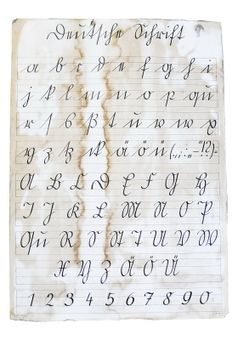 Deutsche Schrift
a b c d e f g h i
j k l m n o p qu
r s ß t u v w x
y z tz ck ä ö ü (.,:;-„"!?)
A B C D E F G H
I J K L M N O P
Qu R S St T U V W
X Y Z Ä Ö Ü
1 2 3 4 5 6 7 8 9 0